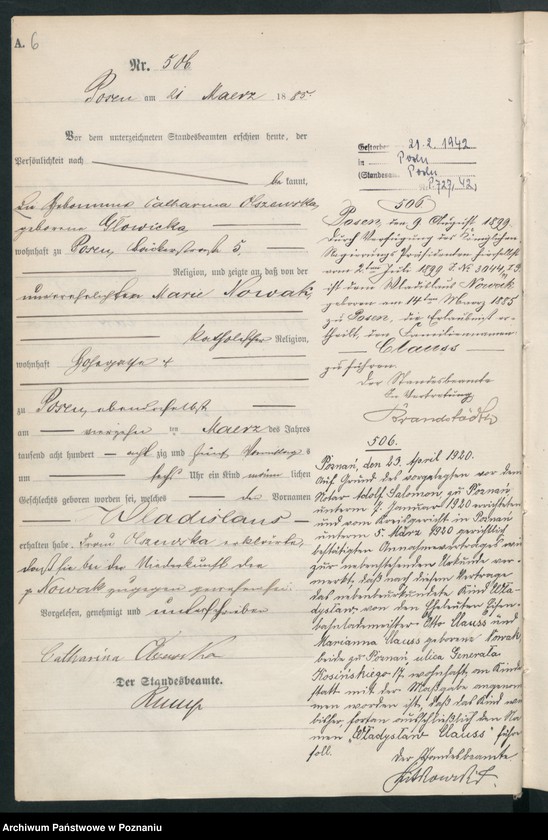 A. 6
Nr. 506
Posen am 21 Maerz 1885.
Vor dem unterzeichneten Standesbeamten erschien heute, der
Persönlichkeit nach
be kannt,
Catharina Olszewska,
geborene Głowicka,
wohnhaft zu Posen, Bäckerstrasse 5,
Religion, und zeigte an, daß von der
unverehelichten Marie Nowak,
katholischer Religion,
wohnhaft
zu Posen, ebendaselbst
am vierzehn ten Maerz des Jahres
tausend acht hundert acht zig und fünf Vormittags
um sechs Uhr ein Kind männ lichen
Geschlechts geboren worden sei, welches den Vornamen
Wladislaus
erhalten habe. Frau erklärte,
daß sie bei der Niederkunft der
p Nowak zugegen gewesen sei.
Vorgelesen, genehmigt und unterschrieben
Catharina
Der Standesbeamte.
Gestorben 21.2.1942
in Posen
(Standesamt Posen
Nr. 727/42)
506
Posen, den 9. August 1899.
Durch Verfügung des Königlichen
Regierungs Präsidenten hierselbst
vom 2ten Juli 1899
ist dem Wladislaus Nowak
geboren am 14ten März 1885
zu Posen, die Erlaubniß er-
theilt, den Familiennamen
Clauss
zu führen.
Der Standesbeamte
In Vertretung
Brandstädter
506.
Poznań, den 23. April 1920.
Auf Grund des vorgelegten vor dem
Notar Adolf Salomon, zu Poznań
unterm 7. Januar 1920 errichteten
und vom Kreisgericht in Poznań
unterm 5. März 1920 gerichtlich
bestätigten Annahmevertrages wird
zur nebenstehenden Urkunde ver-
merkt, daß nach diesem Vertrage
das nebenbeurkundete Kind Wła-
dysław von den Eheleuten Eisen-
bahnlademeister Otto Clauss und
Marianna Clauss geborene Nowak,
beide zu Poznań, ulica Generała
Kosińskiego 17, wohnhaft, an Kindes
statt mit der Maßgabe angenom-
men worden ist, daß das Kind wie
bisher, fortan ausschließlich den Na-
men „Władysław Clauss" führen
soll.
Der Standesbeamte
Archiwum Państwowe w Poznaniu